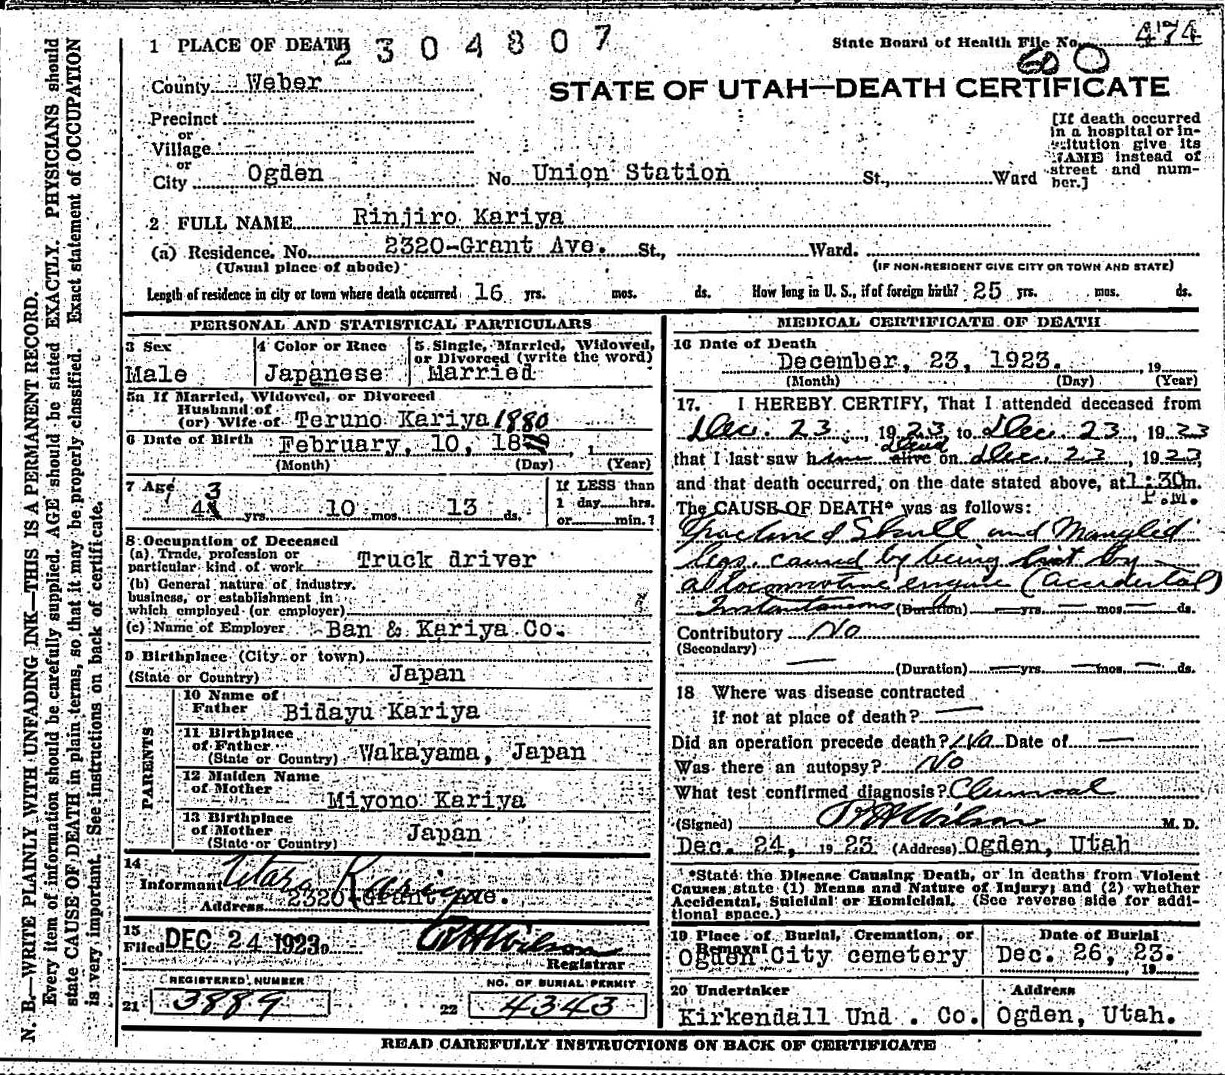 1 PLACE OF DEATH 2304807
State Board of Health File No. 474
600
County Weber
STATE OF UTAH—DEATH CERTIFICATE
Precinct
or
Village
or
City Ogden No. Union Station St., Ward
[If death occurred
in a hospital or in-
stitution give its
NAME instead of
street and num-
ber.]
2 FULL NAME Rinjiro Kariya
(a) Residence. No. 2320-Grant Ave. St., Ward.
(Usual place of abode) (IF NON-RESIDENT GIVE CITY OR TOWN AND STATE)
Length of residence in city or town where death occurred 16 yrs. mos. ds. How long in U. S., if of foreign birth? 25 yrs. mos. ds.
PERSONAL AND STATISTICAL PARTICULARS
3 Sex
Male
4 Color or Race
Japanese
5 Single, Married, Widowed,
or Divorced (write the word)
Married
5a If Married, Widowed, or Divorced
Husband of
(or) Wife of Teruno Kariya 1880
6 Date of Birth February, 10, 18
(Month) (Day) (Year)
7 Age 43 yrs 10 mos 13 ds.
If LESS than
1 day hrs.
or min.?
8 Occupation of Deceased
(a) Trade, profession or
particular kind of work Truck driver
(b) General nature of industry,
business, or establishment in
which employed (or employer)
(c) Name of Employer Ban & Kariya Co.
9 Birthplace (City or town)
(State or Country) Japan
PARENTS
10 Name of
Father Bidayu Kariya
11 Birthplace
of Father
(State or Country) Wakayama, Japan
12 Maiden Name
of Mother Miyono Kariya
13 Birthplace
of Mother
(State or Country) Japan
14
Informant Kariya
Address 2320-Grant Ave.
15
Filed DEC 24 1923
R H Wilson
Registrar
REGISTERED NUMBER
21 3889
NO. OF BURIAL PERMIT
22 4343
MEDICAL CERTIFICATE OF DEATH
16 Date of Death
December, 23, 1923. , 19
(Month) (Day) (Year)
17. I HEREBY CERTIFY, That I attended deceased from
Dec. 23, 1923 to Dec. 23, 1923
Dead
that I last saw him alive on Dec. 23, 1923,
and that death occurred, on the date stated above, at 1:30 m.
P.M.
The CAUSE OF DEATH* was as follows:
Fractured Skull and Mangled
legs, caused by being hit by
a locomotive engine (accidental)
Instantaneous (Duration) yrs. mos. ds.
Contributory No
(Secondary)
(Duration) yrs. mos. ds.
18 Where was disease contracted
if not at place of death?
Did an operation precede death? No Date of
Was there an autopsy? No
What test confirmed diagnosis? Clinical
(Signed) R H Wilson M. D.
Dec. 24, 1923 (Address) Ogden, Utah
*State the Disease Causing Death, or in deaths from Violent
Causes state (1) Means and Nature of Injury; and (2) whether
Accidental, Suicidal or Homicidal. (See reverse side for addi-
tional space.)
19 Place of Burial, Cremation, or
Removal
Ogden City cemetery
Date of Burial
Dec. 26, 23.
19
20 Undertaker
Kirkendall Und. Co.
Address
Ogden, Utah.
READ CAREFULLY INSTRUCTIONS ON BACK OF CERTIFICATE
N. B.—WRITE PLAINLY WITH UNFADING INK—THIS IS A PERMANENT RECORD.
Every item of information should be carefully supplied. AGE should be stated EXACTLY. PHYSICIANS should
state CAUSE OF DEATH in plain terms, so that it may be properly classified. Exact statement of OCCUPATION
is very important. See instructions on back of certificate.